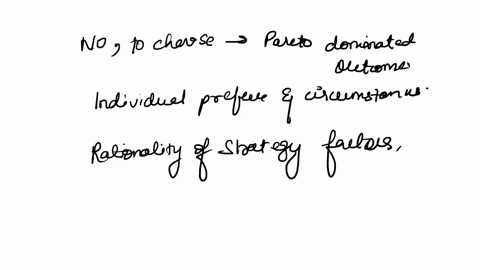 No, to choose → Pareto dominated
Outcome.
Individual prefere & circumstances.
Rationality of strategy factors,